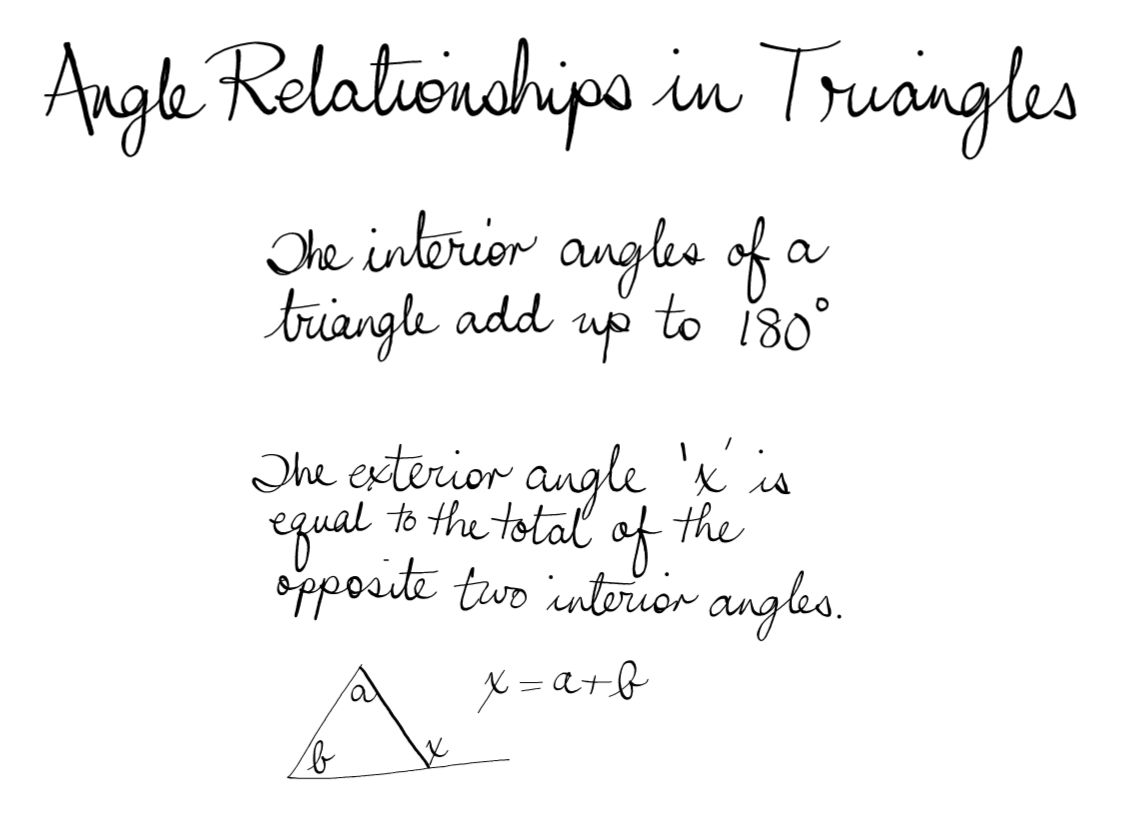 Angle Relationships in Triangles
The interior angles of a
triangle add up to 180°
The exterior angle 'x' is
equal to the total of the
opposite two interior angles.
x = a + b
a
b
x